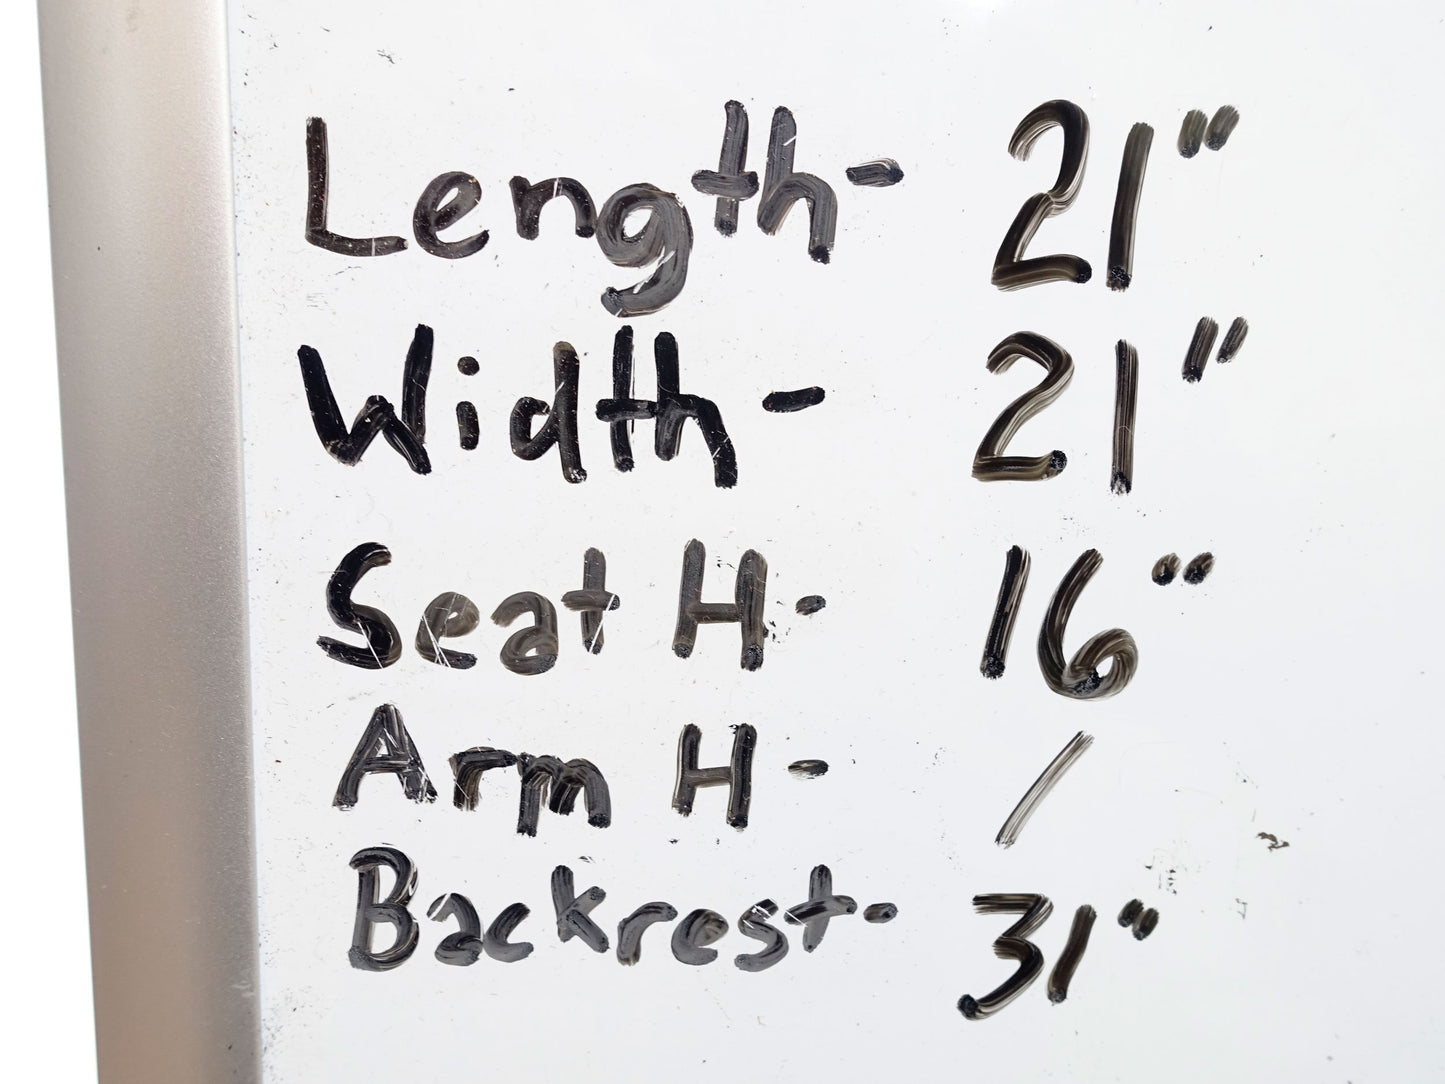 Length- 21"
Width - 21"
Seat H- 16"
Arm H- /
Backrest- 31"